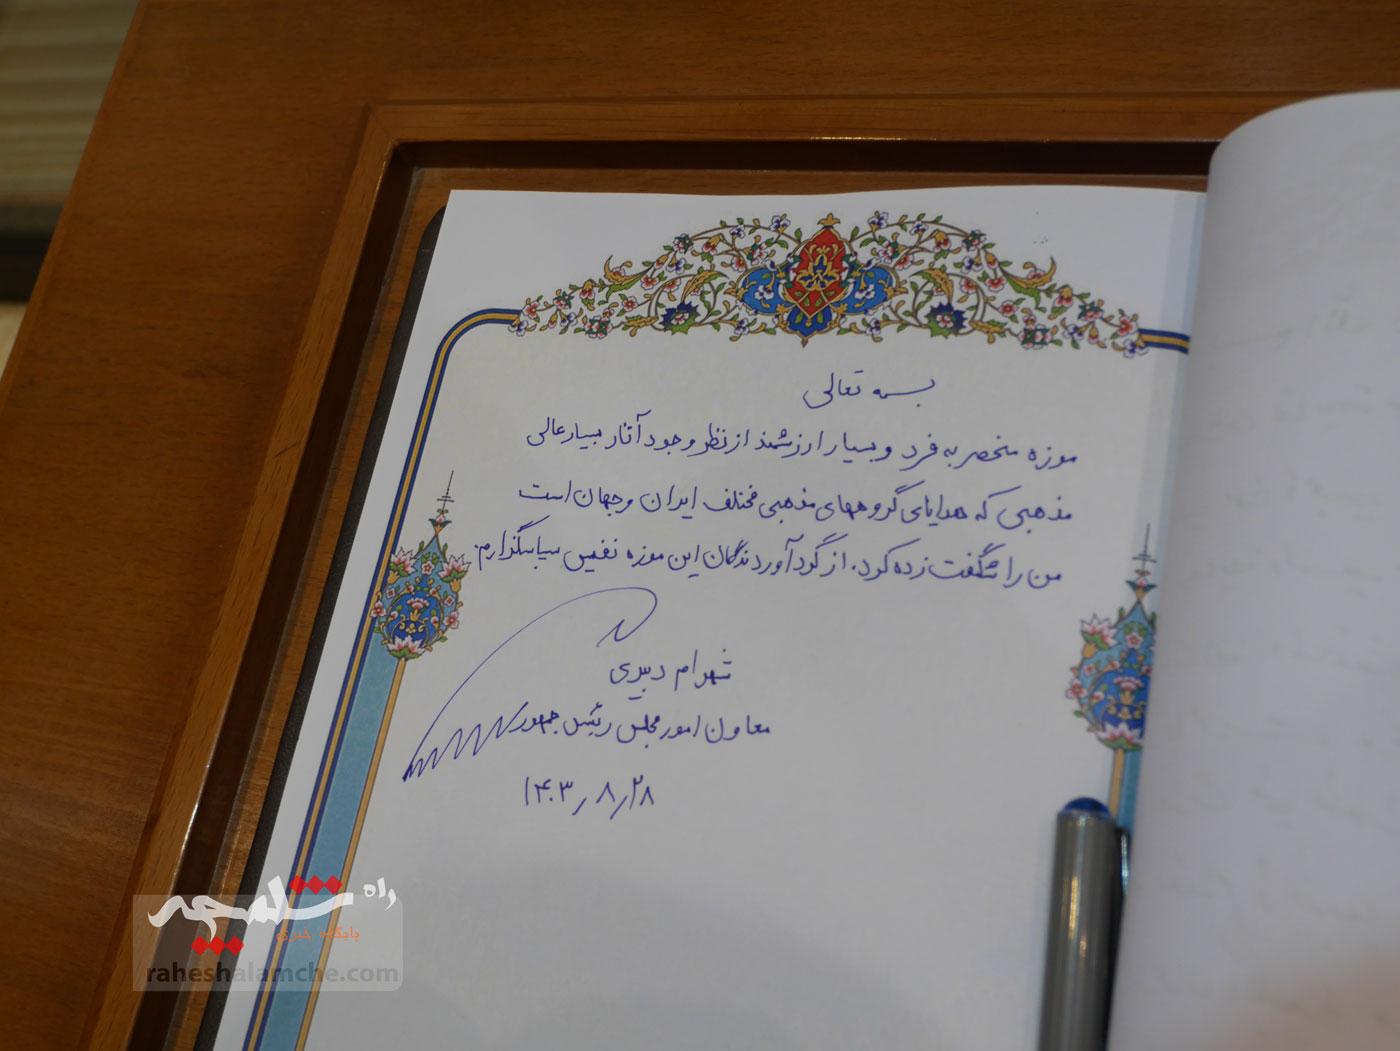 بسمه تعالی
موزه منحصر به فرد و بسیار ارزشمند از نظر وجود آثار بسیار عالی
مذهبی که هدایای گروههای مذهبی مختلف ایران و جهان است
من را شگفت زده کرد. از گردآورندگان این موزه نفیس سپاسگذارم.
شهرام دبیری
معاون امور مجلس رئیس جمهور
۱۴۰۳٫۸٫۲۸
راه شلمچه
پایگاه خبری
raheshalamche.com